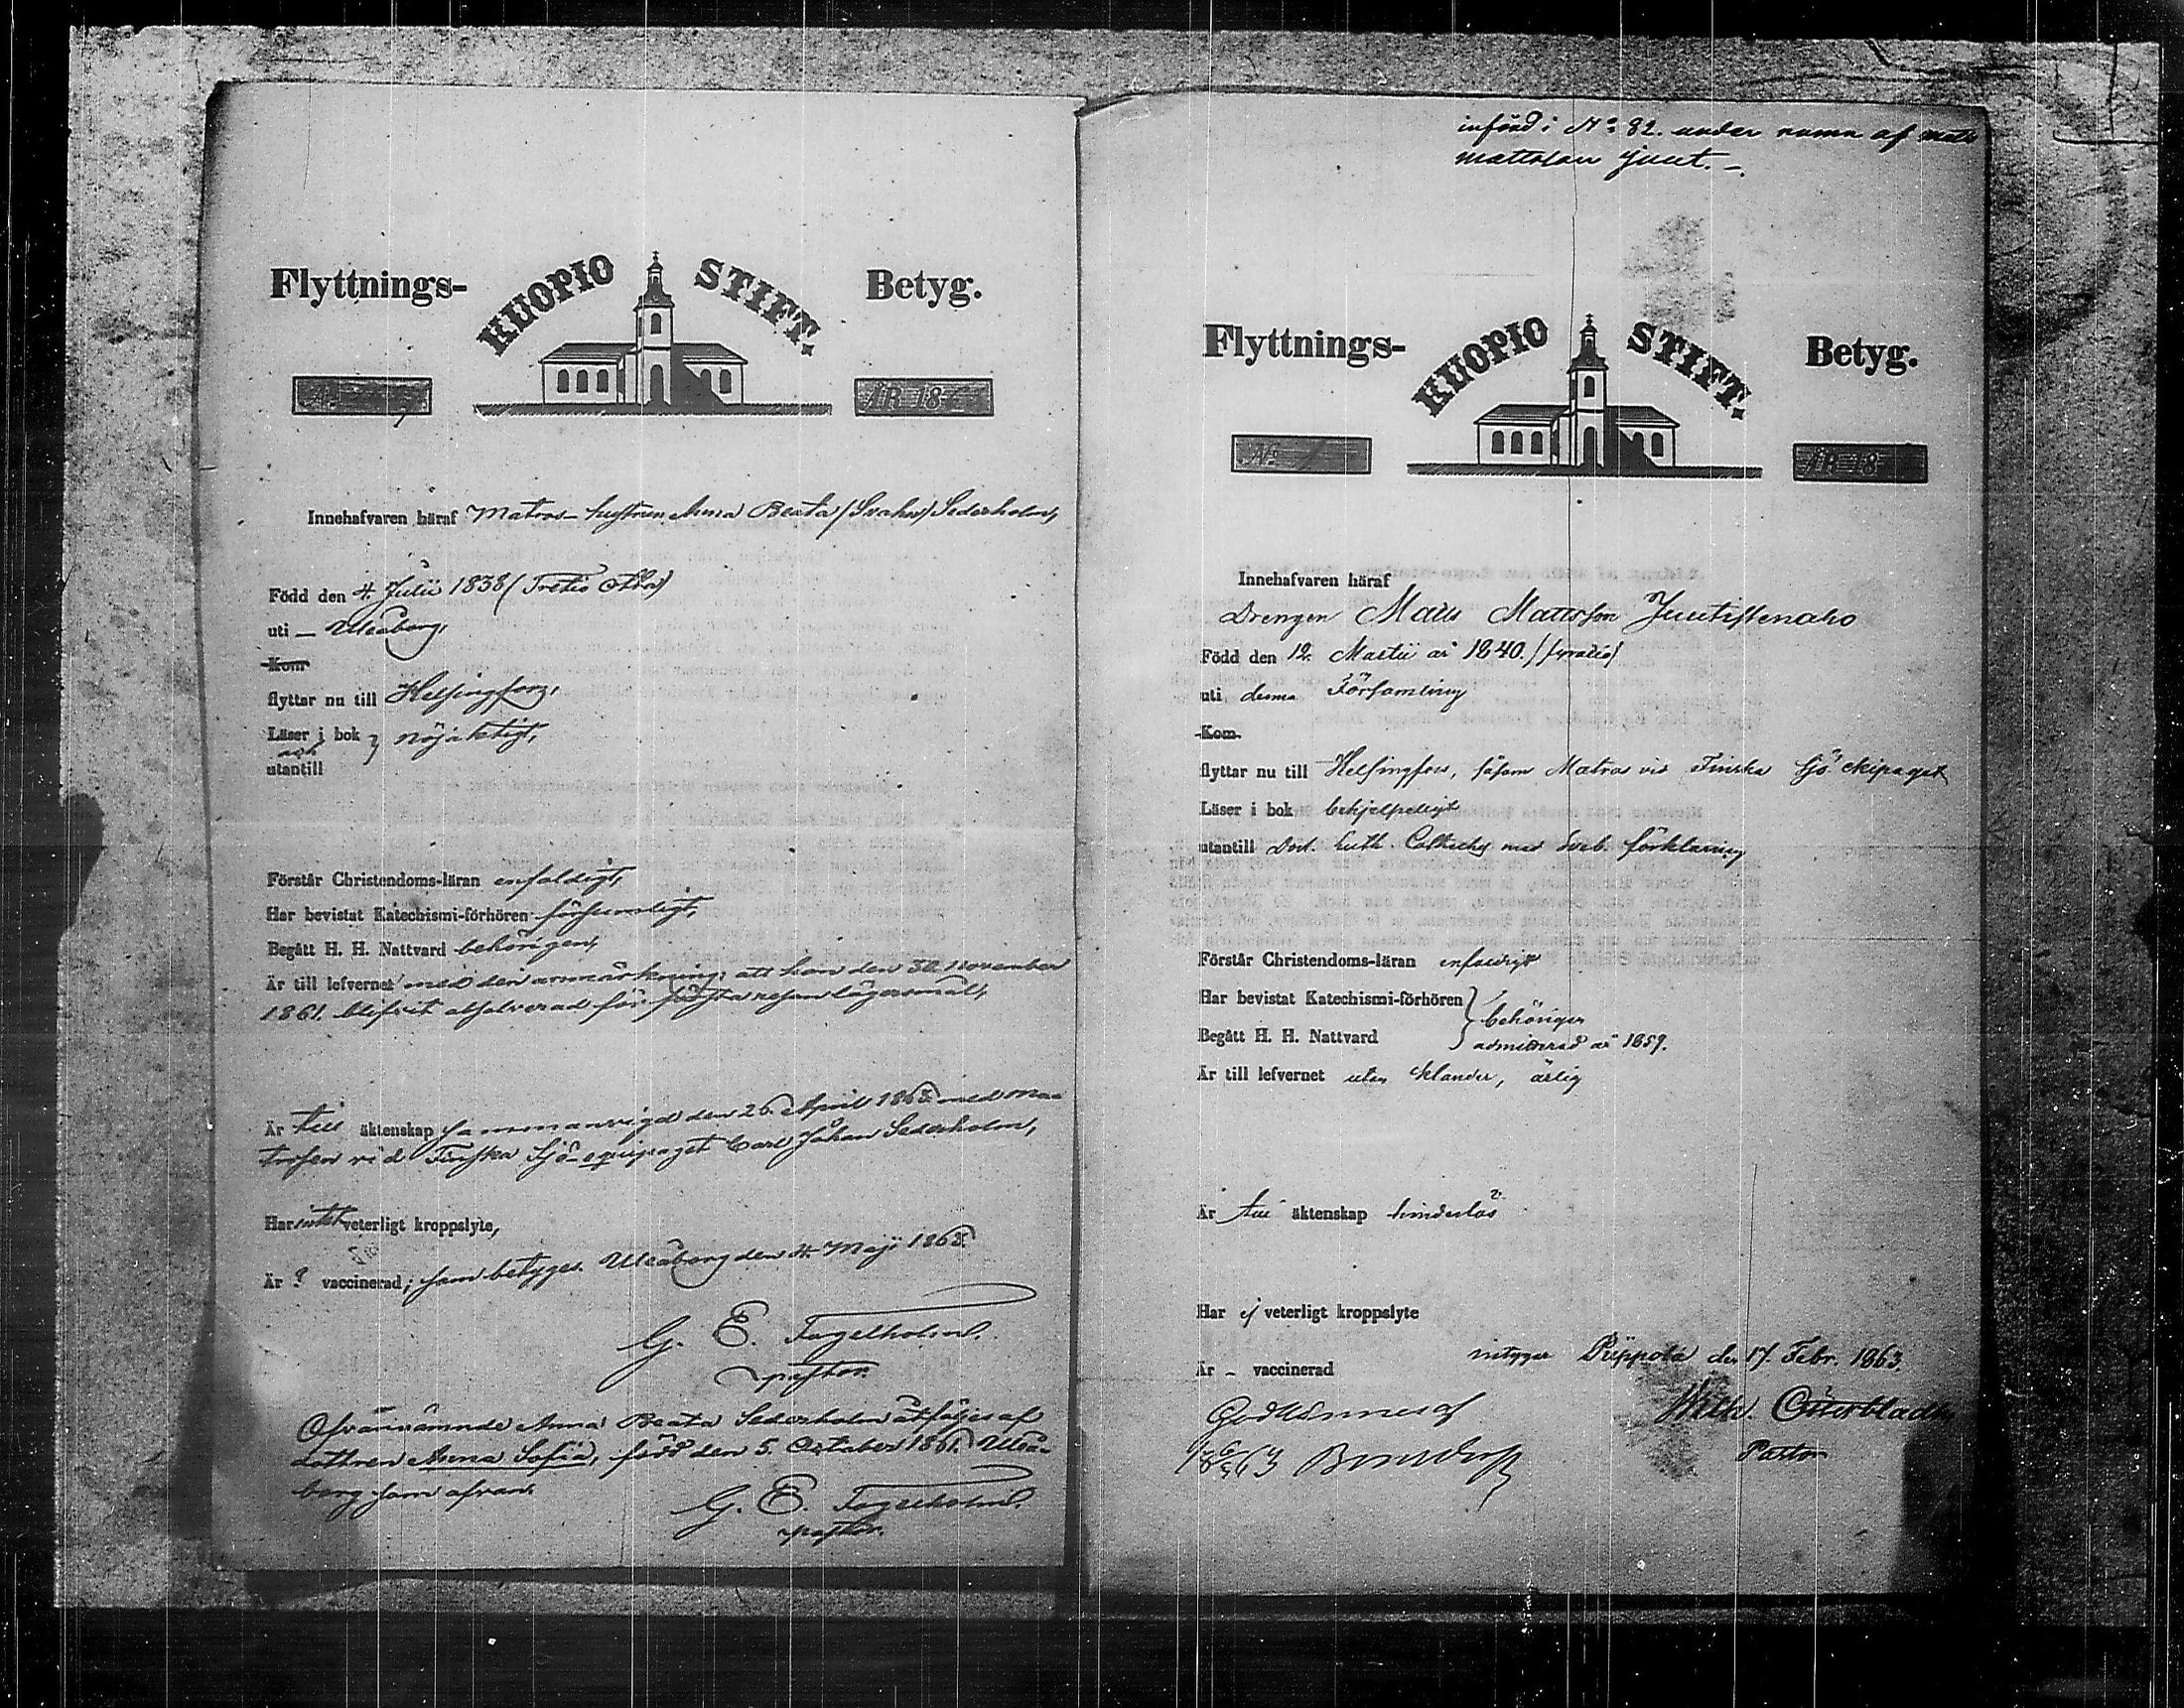 Flyttnings- KUOPIO STIFT. Betyg.
No ÅR 18
Innehafvaren häraf Matros-hustrun Anna Beata (Svahn) Sederholm,
Född den 4. Julii 1838 (Tretio åtta)
uti – Uleåborg,
Kom
flyttar nu till Helsingfors,
Läser i bok } nöjaktigt,
och
utantill
Förstår Christendoms-läran enfaldigt,
Har bevistat Katechismi-förhören försumligt,
Begått H. H. Nattvard behörigen,
Är till lefvernet med den anmärkning, att hon den 30 November
1861. blifvit absolverad för första resan lägersmål,
Är till äktenskap sammanvigd den 26. April 1863. med Ma-
trosen vid Finska Sjö-equipaget Carl Johan Sederholm,
Har intet veterligt kroppslyte,
Är ? vaccinerad; som betyges. Uleåborg den 4. Maji 1863.
G. E. Fogelholm.
pastor.
Ofvannämnde Anna Beata Sederholm åtföljes af
dottren Anna Sofia, född den 5. October 1861. Uleå-
borg som ofvan.
G. E. Fogelholm.
pastor.
införd i No 82. under namn af Matts
Mattsson Juut.-
Flyttnings- KUOPIO STIFT. Betyg.
No ÅR 18
Innehafvaren häraf
Drengen Matts Mattsson Juutistenaho
Född den 12. Martii år 1840. (fyratio)
uti denna Församling
Kom
flyttar nu till Helsingfors, såsom Matros vid Finska Sjö ekipaget
Läser i bok behjelpeligt
utantill Doct. Luth. Catheches med Sveb. förklaring
Förstår Christendoms-läran enfaldigt
Har bevistat Katechismi-förhören } behörigen
Begått H. H. Nattvard admitterad år 1859.
Är till lefvernet utan klander, ärlig
Är till äktenskap hinderlös
Har ej veterligt kroppslyte
Är – vaccinerad
intygar Piippola den 17. Febr. 1863.
Godkännes af
Wilh. Österbladh
Pastor